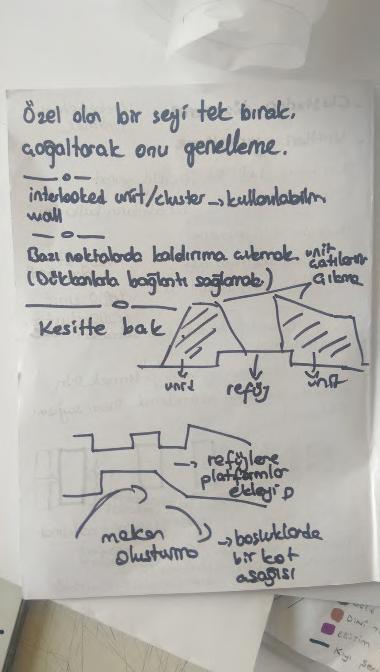 Özel olan bir şeyi tek bırak,
çoğaltarak onu genelleme.
interlooked unit/cluster → kullanılabilir
wall
Bazı noktalarda kaldırıma çıkmak.
(Dükkanlarla bağlantı sağlamak)
unit
çatılarına
çıkma
Kesitte bak
unit
refüj
ünit
→ refüjlere
platformlar
ekleyip
mekan
oluşturma
→ boşluklarda
bir kot
aşağısı